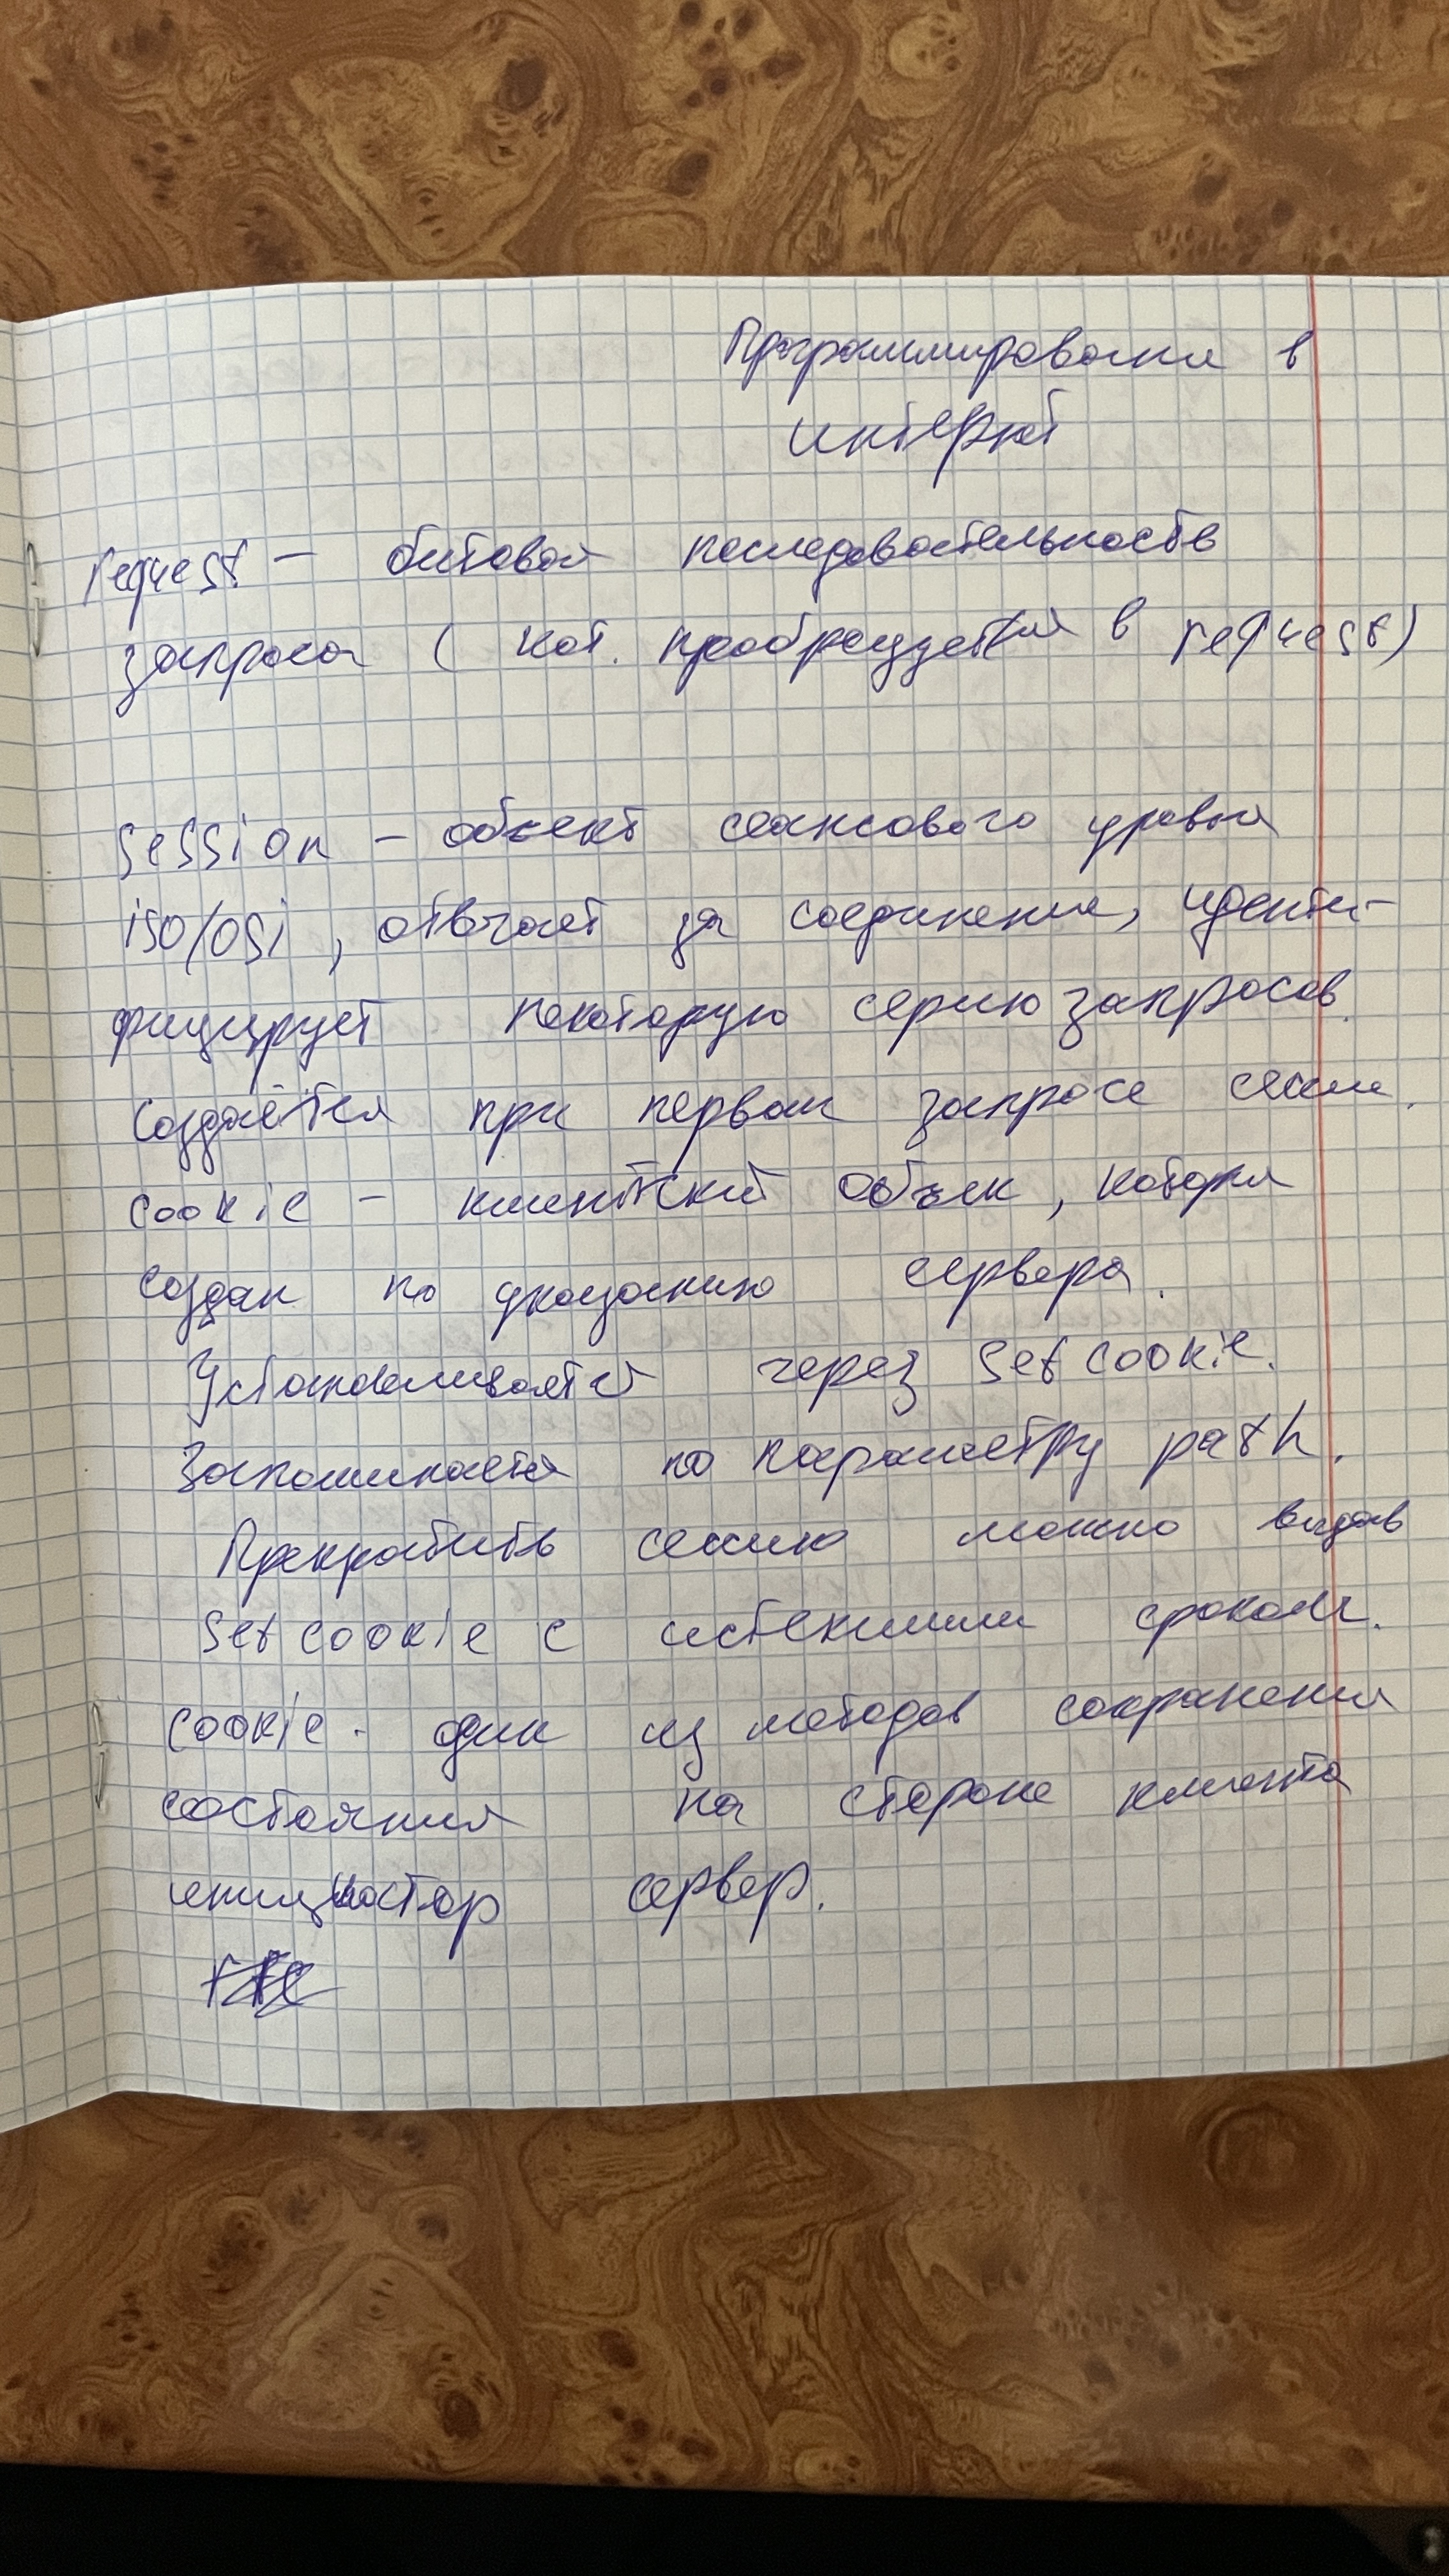 Программирование в
интернет
request – битовая последовательность
запроса ( кот. преобразуется в request)
session – объект сеансового уровня
iso/osi, отвечает за соединение, иденти-
фицирует некоторую серию запросов.
Создаётся при первом запросе сессии.
cookie – клиентский объек, который
создан по указанию сервера.
Устанавливается через Set cookie.
Запоминается по параметру path.
Прекратить сессию можно выдав
Set cookie с истекшим сроком.
cookie - один из методов сохранения
состояния на стороне клиента
инициатор сервер.